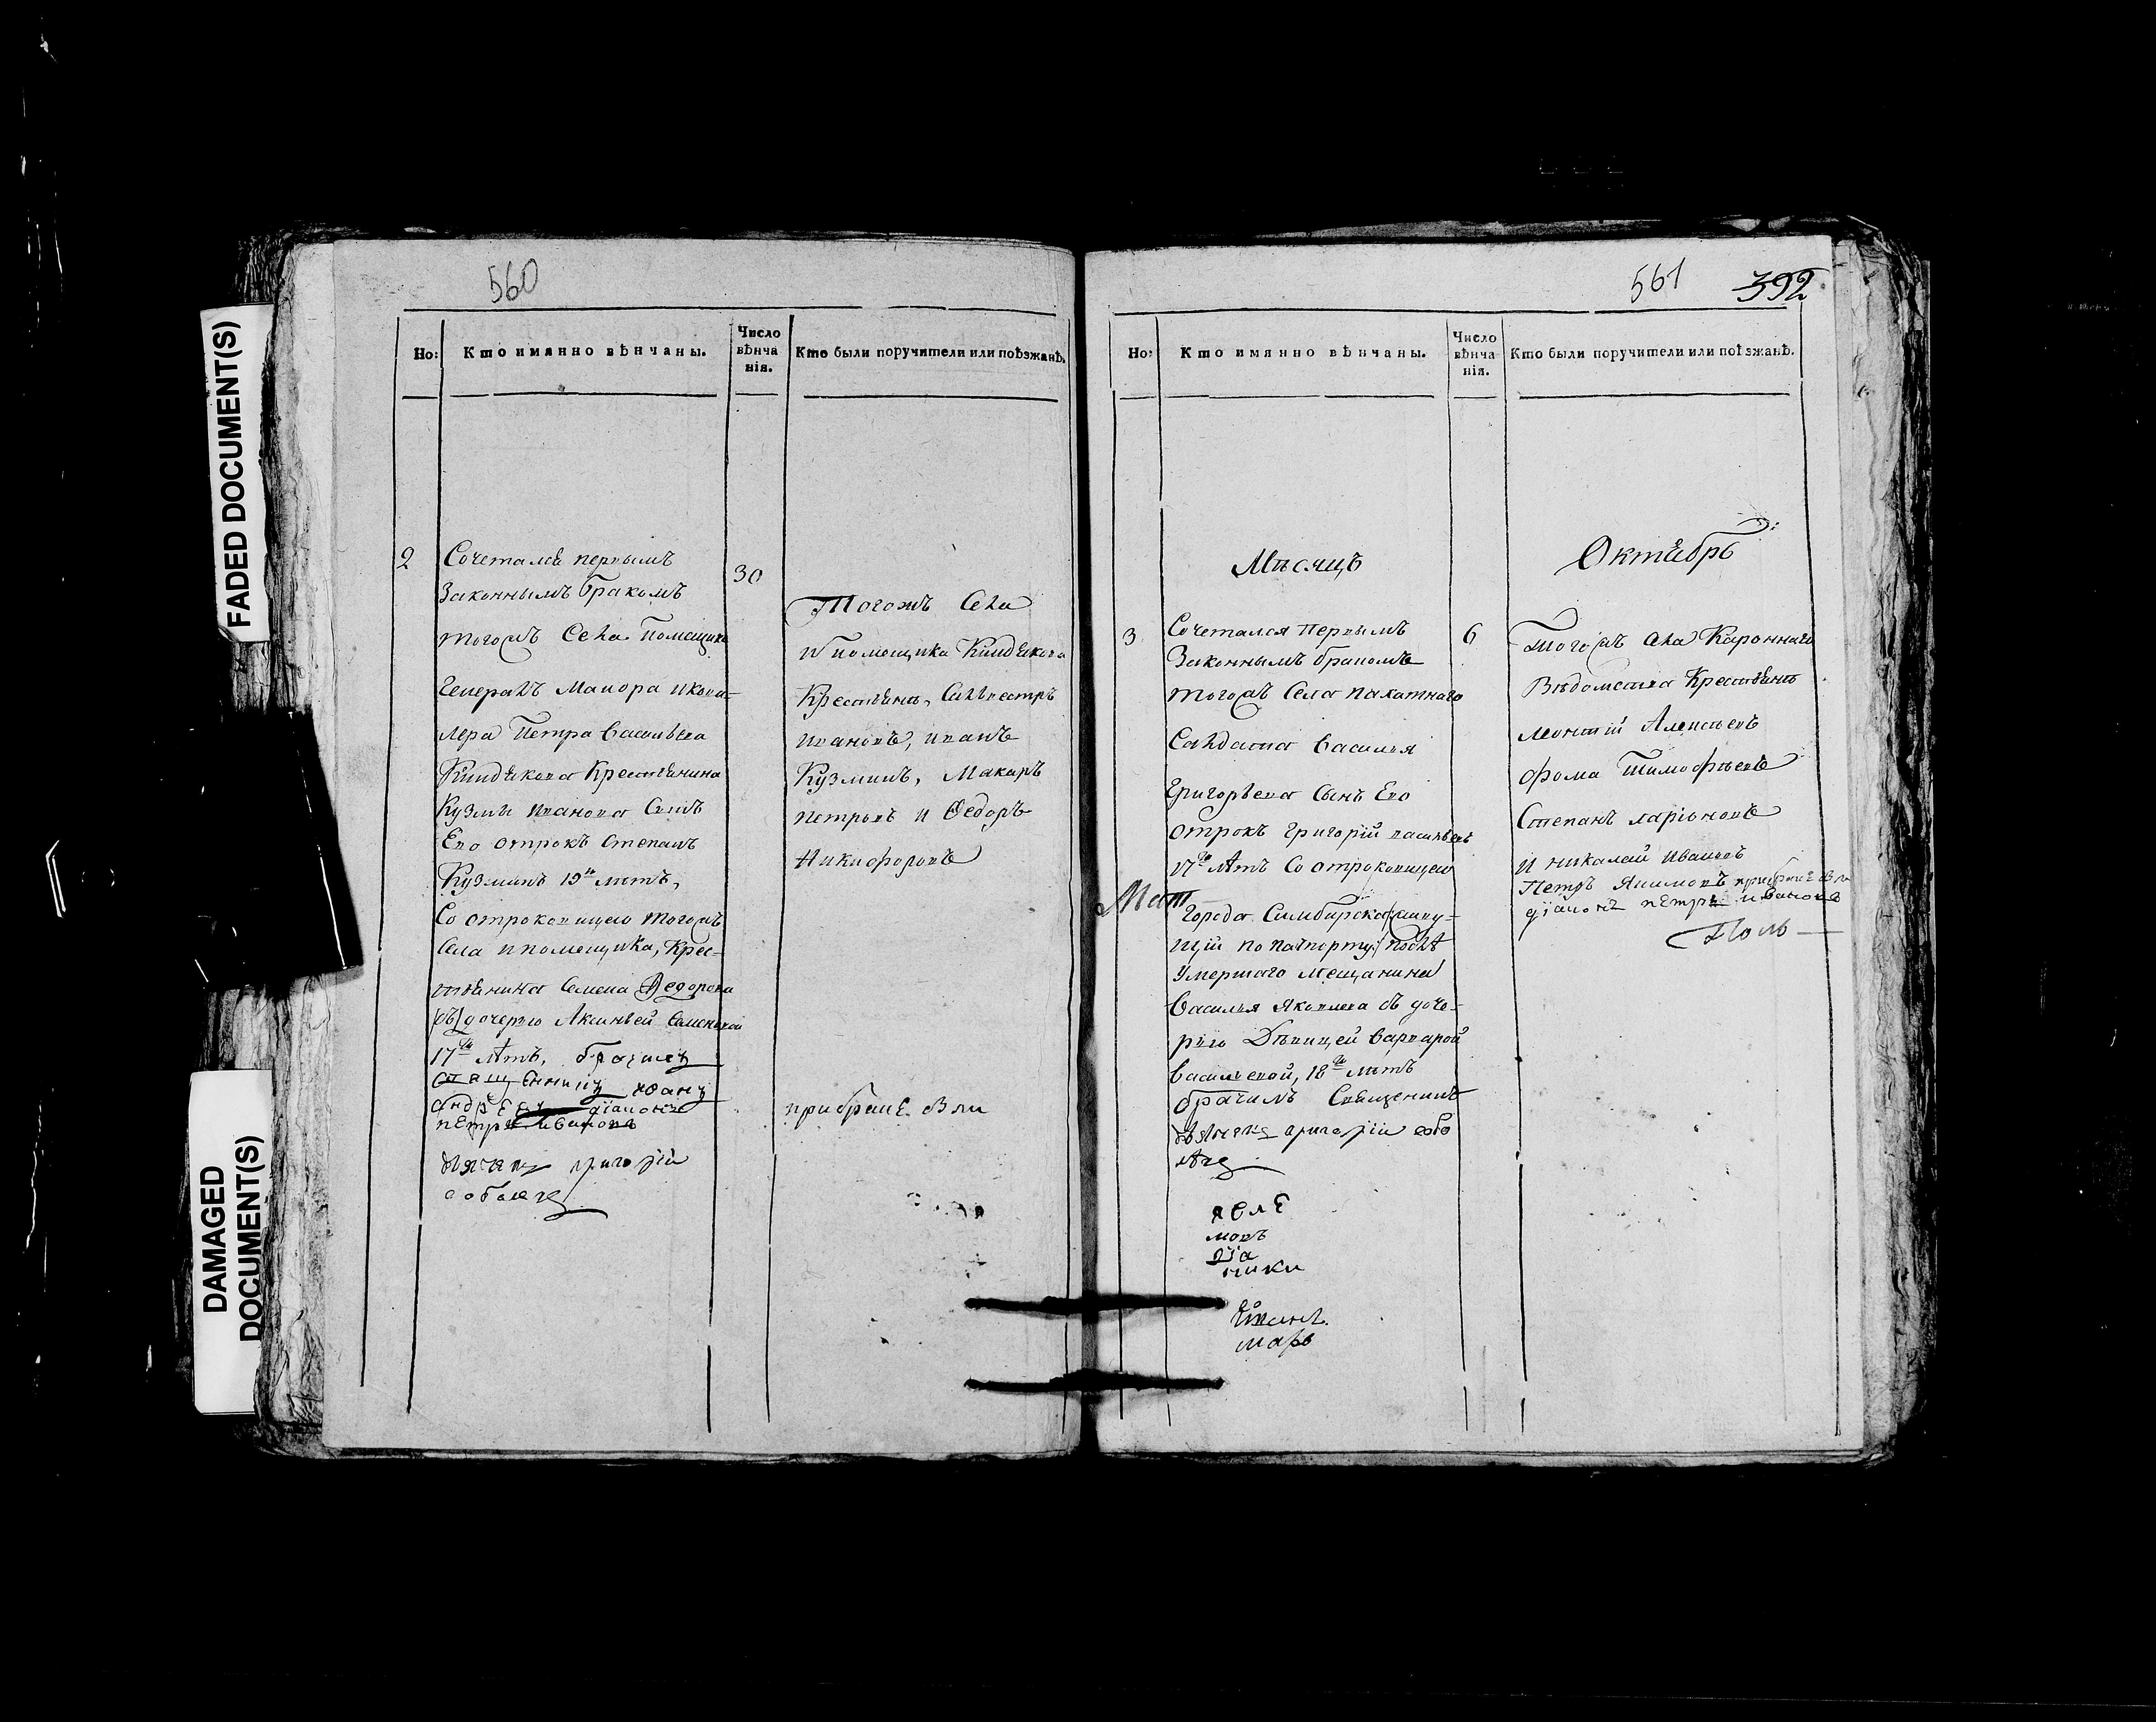 FADED DOCUMENT(S)
DAMAGED
DOCUMENT(S)
560
Но:
Кто имянно вѣнчаны.
Число
вѣнча
нія.
Кто были поручители или поѣзжанѣ.
2
Сочетался первымъ
Законнымъ бракомъ
тогожъ Села Помещика
Генералъ Маиора икова-
лера Петра Васильева
Киндякова Крестьянина
Кузмы Иванова Сынъ
Ево отрокъ Степанъ
Кузминъ 19ти лѣтъ,
Со отроковицею тогожъ
Села ипомещика, Крес-
тьянина Семена Федорова
съ дочерью Аксиньей Семеновой
17ти лѣтъ, брачилъ
иоанъ
андрЕевъ діаконъ
пЕтръ иванова
григорій
30
Тогожъ Села
Ипомещика Киндякова
Крестьянѣ, Силвестръ
Ивановъ, иванъ
Кузминъ, Макаръ
петровъ и Федоръ
Никифоровъ
прибракЕ
561
392
Но:
Кто имянно вѣнчаны.
Число
вѣнча-
нія.
Кто были поручители или поѣзжанѣ.
Мѣсяцъ
Октябрь
3
Сочетался Первымъ
Законнымъ бракомъ
тогожъ Села пахатнаго
Салдата Василья
Григорьева Сынъ Ево
отрокъ Григорій васильевъ
17ти лѣтъ Со отроковицею
Города Симбирска живу-
щій по пачпорту послѣ
Умершаго мещанина
Василья Яковлева съ доче-
рью Дѣвицей Варварой
Васильевой, 18ти лѣтъ
брачилъ Священникъ
григорій
6
Тогожъ Села Кароннаго
Вѣдомства Крестьянѣ
леонтій Алексѣевъ
Фома Тимофѣевъ
Степанъ ларіоновъ
И николай Ивановъ
Петръ Якимовъ прибракЕ
діаконъ пЕтръ иванова